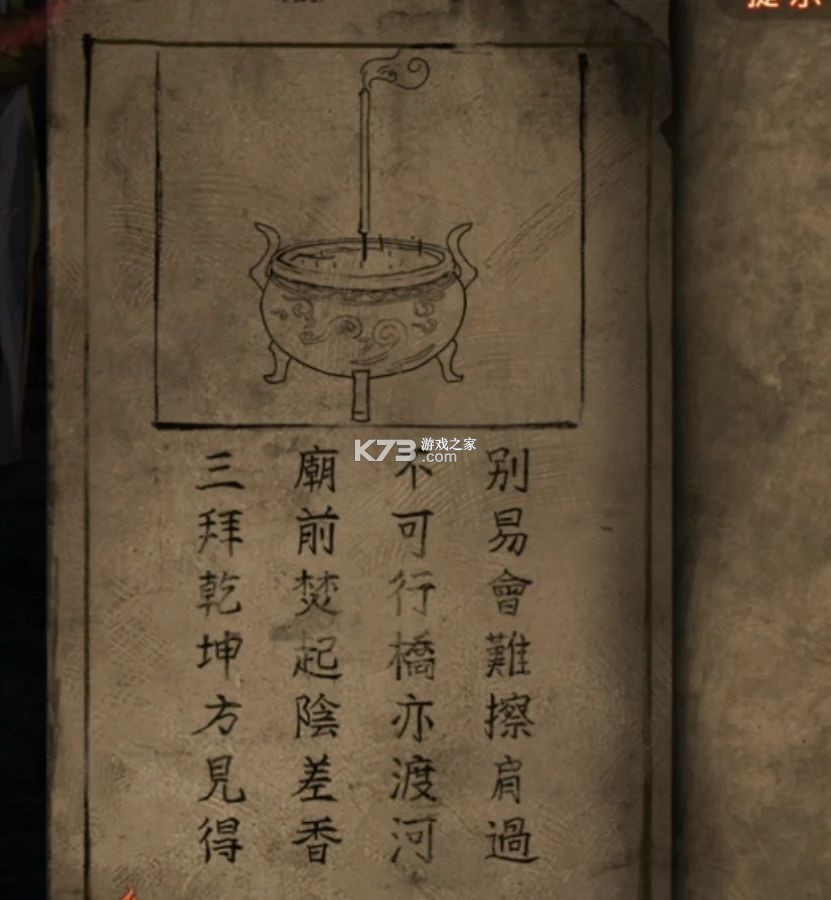 提示
别易會難擦肩過
不可行橋亦渡河
廟前焚起陰差香
三拜乾坤方見得
K73 游戏之家
.com